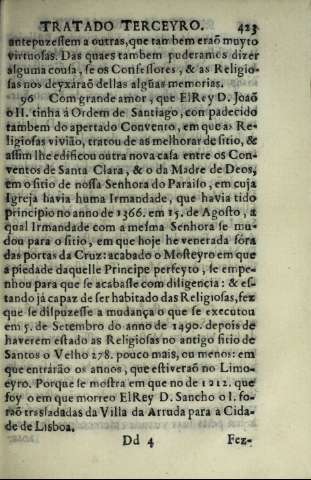 TRATADO TERCEYRO. 423
antepuzessem a outras, que tam bem eraõ muyto
virtuosas. Das quaes tambem puderamos dizer
alguma cousa, se os Confessores, & as Religio-
sas nos deyxaraõ dellas algũas memorias.
96 Com grande amor, que ElRey D. Joaõ
o II. tinha á Ordem de Santiago, con padecido
tambem do apertado Convento, em que as Re-
ligiosas vivião, tratou de as melhorar de sitio, &
assim lhe edificou outra nova casa entre os Con-
ventos de Santa Clara, & o da Madre de Deos,
em o sitio de nossa Senhora do Paraiso, em cuja
Igreja havia huma Irmandade, que havia tido
principio no anno de 1366. em 15. de Agosto, a
qual Irmandade com a mesma Senhora se mu-
dou para o sitio, em que hoje he venerada fóra
das portas da Cruz: acabado o Mosteyro em que
a piedade daquelle Principe perfeyto, se empe-
nhou para que se acabasse com diligencia: & es-
tando já capaz de ser habitado das Religiosas, fez
que se dispuzesse a mudança o que se executou
em 5. de Setembro do anno de 1490. depois de
haverem estado as Religiosas no antigo sitio de
Santos o Velho 278. pouco mais, ou menos: em
que entráraõ os annos, que estiveraõ no Limo-
eyro. Porque se mostra em que no de 1212. que
foy o em que morreo ElRey D. Sancho o I. fo-
raõ trasladadas da Villa da Arruda para a Cida-
de de Lisboa.
Dd 4 Fez-